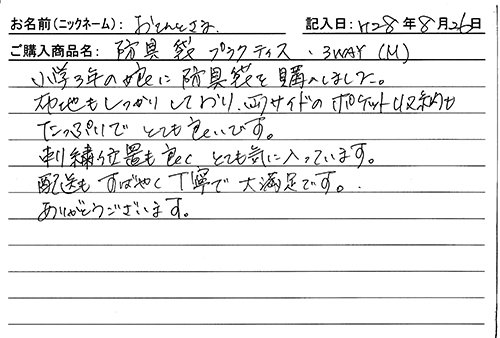 お名前(ニックネーム): おてんとさま 記入日: H28年8月26日
ご購入商品名: 防具袋 プラクティス・3WAY (M)
小学3年の娘に防具袋を購入しました。
布地もしっかりしており、両サイドのポケット収納も
たっぷりでとても良いです。
刺繍位置も良くとても気に入っています。
配送もすばやく丁寧で大満足です。
ありがとうございます。